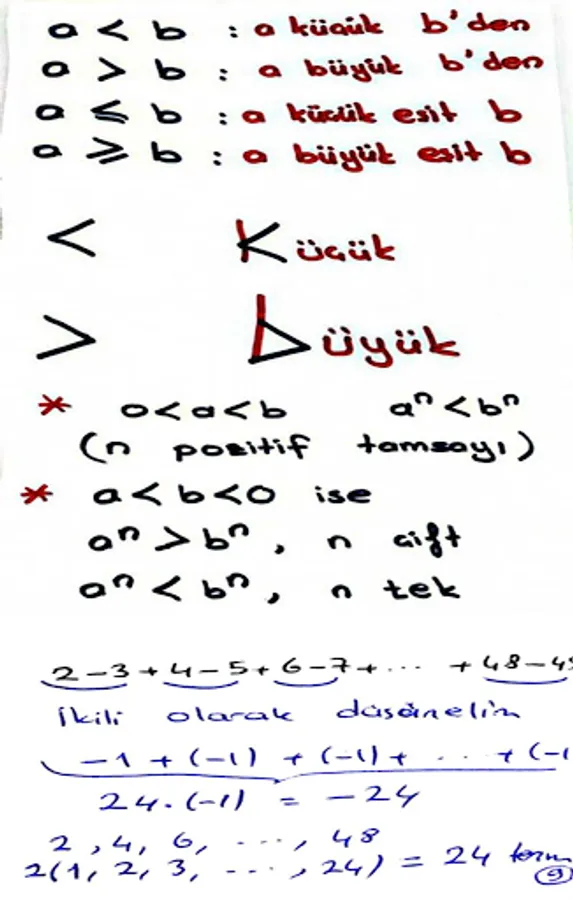 a < b : a küçük b'den
a > b : a büyük b'den
a ≤ b : a küçük eşit b
a ≥ b : a büyük eşit b
< Küçük
> büyük
* 0<a<b aⁿ<bⁿ
(n pozitif tamsayı)
* a<b<0 ise
aⁿ > bⁿ, n çift
aⁿ < bⁿ, n tek
2-3+4-5+6-7+... +48-49
İkili olarak düşünelim
-1+(-1)+(-1)+...+(-1
24.(-1) = -24
2, 4, 6, ..., 48
2(1, 2, 3, ..., 24) = 24 term
9